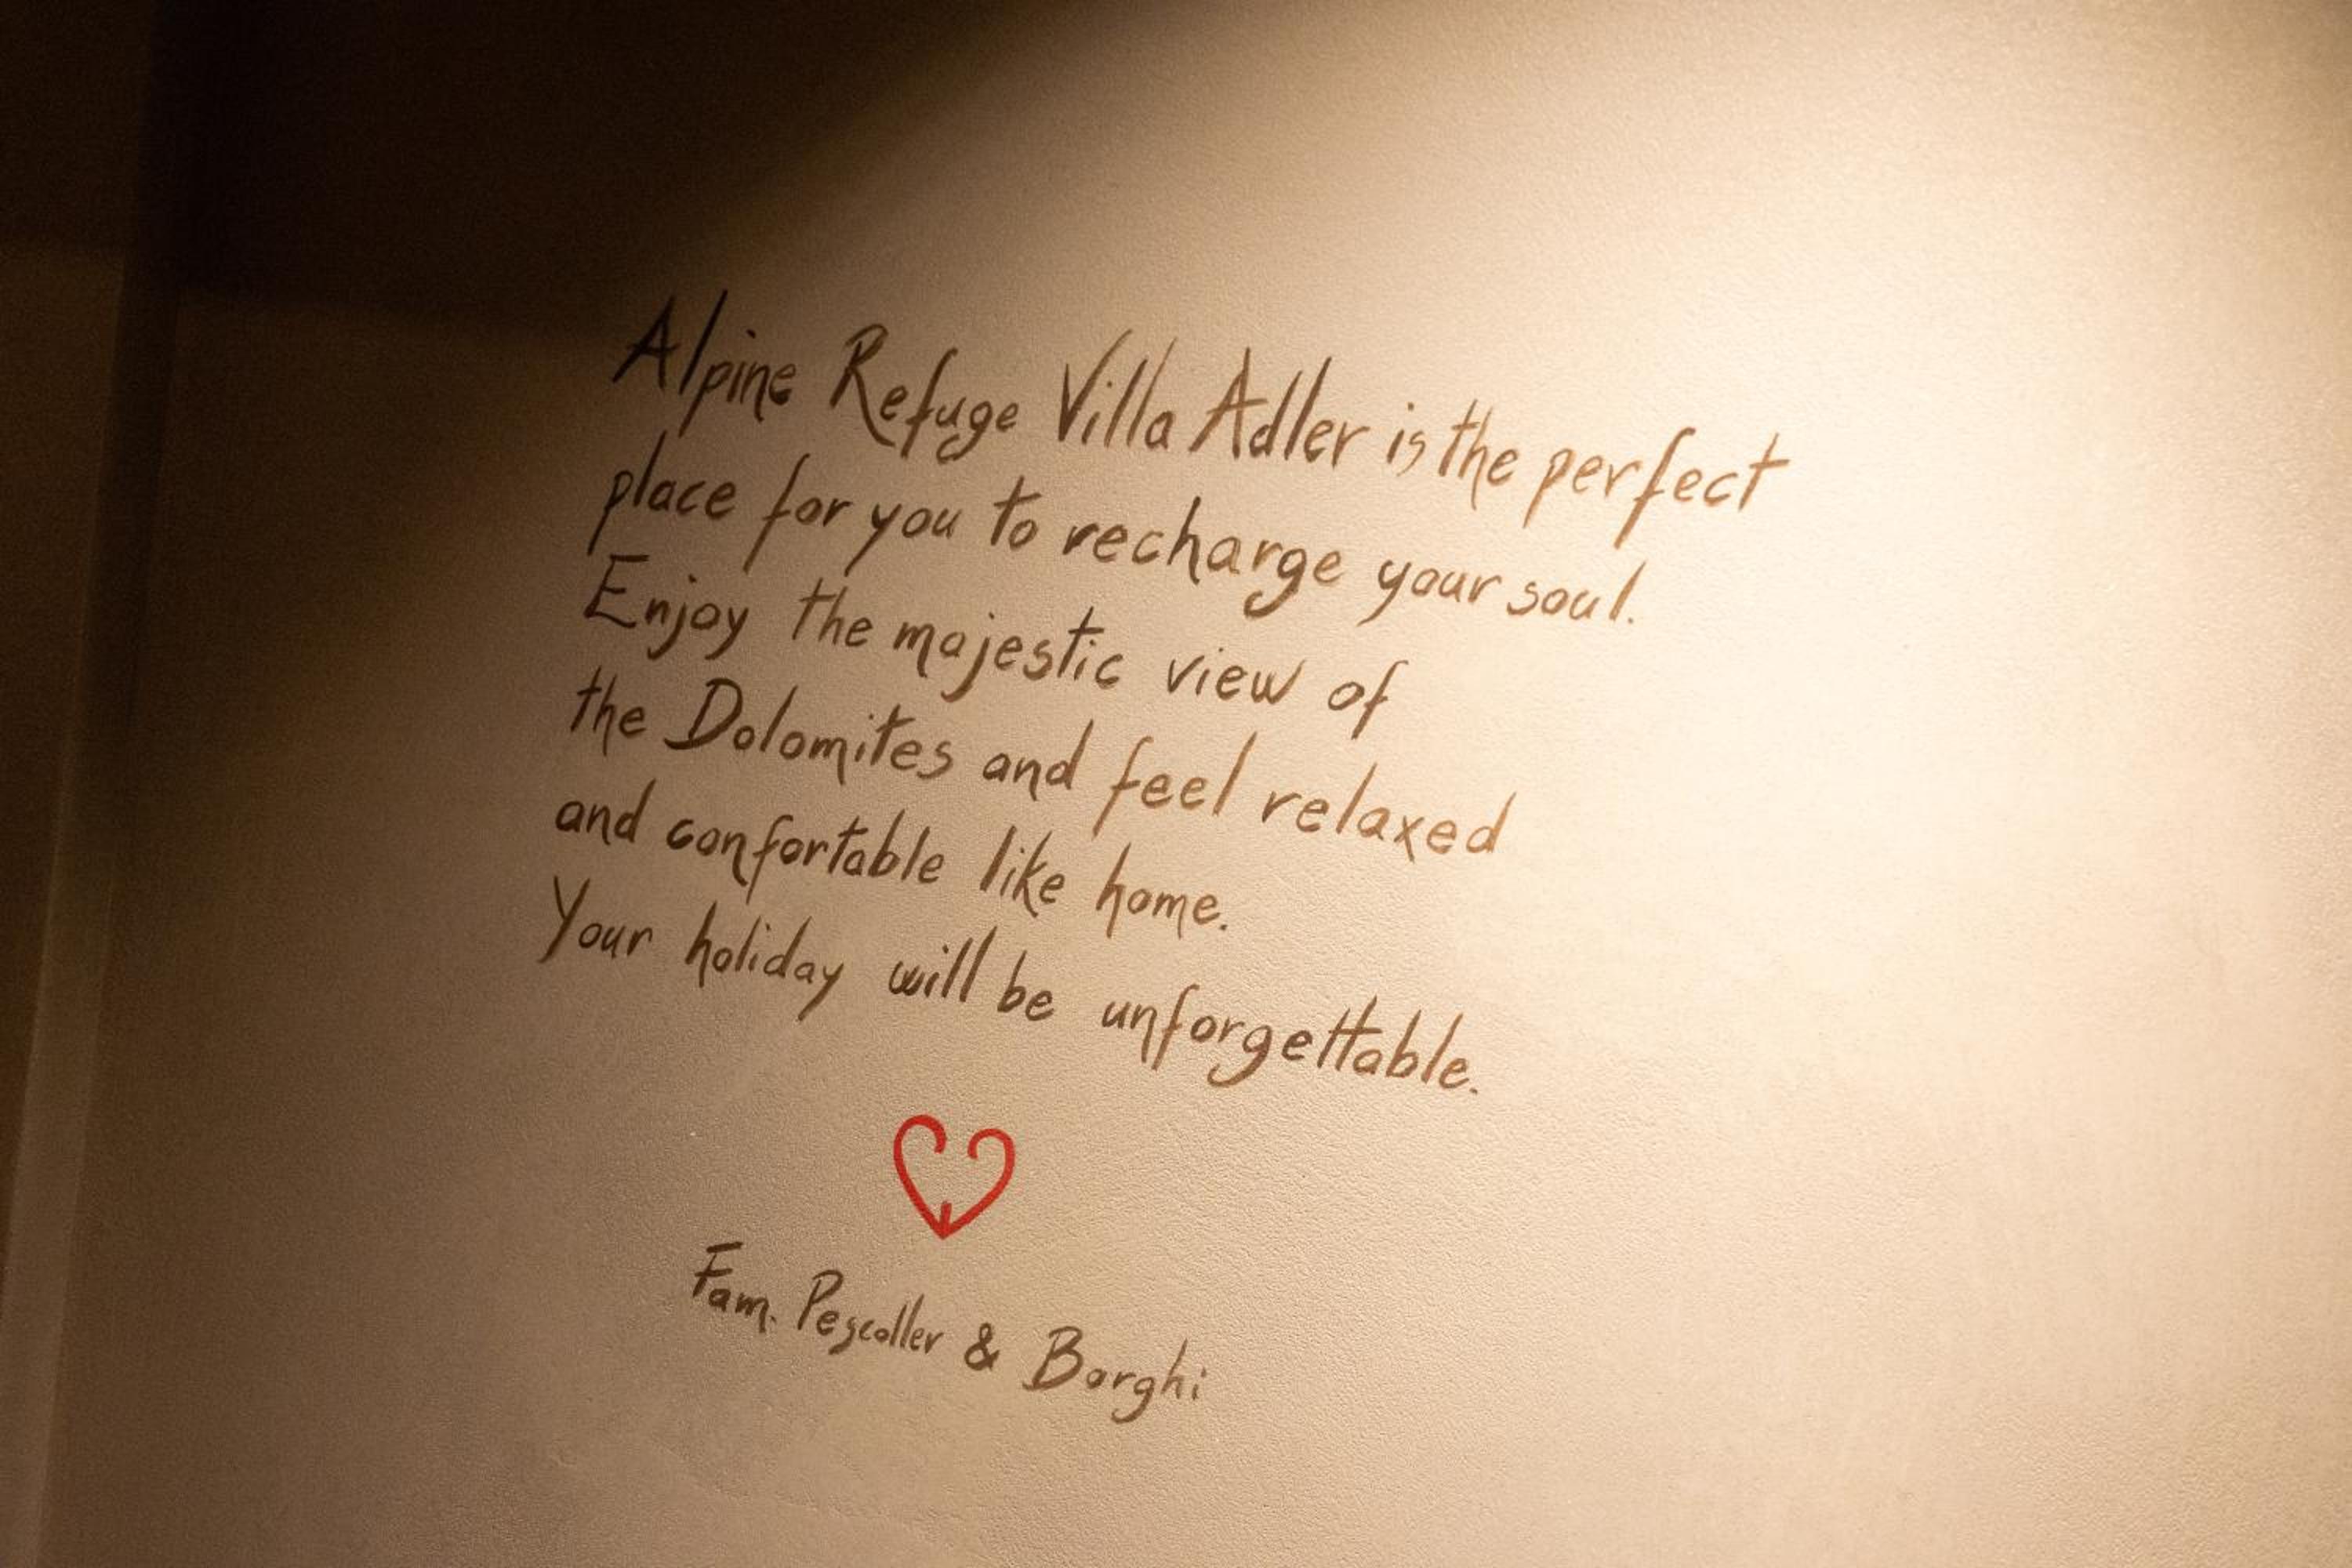 Alpine Refuge Villa Adler is the perfect
place for you to recharge your soul.
Enjoy the majestic view of
the Dolomites and feel relaxed
and confortable like home.
Your holiday will be unforgettable.
Fam. Pescoller & Borghi